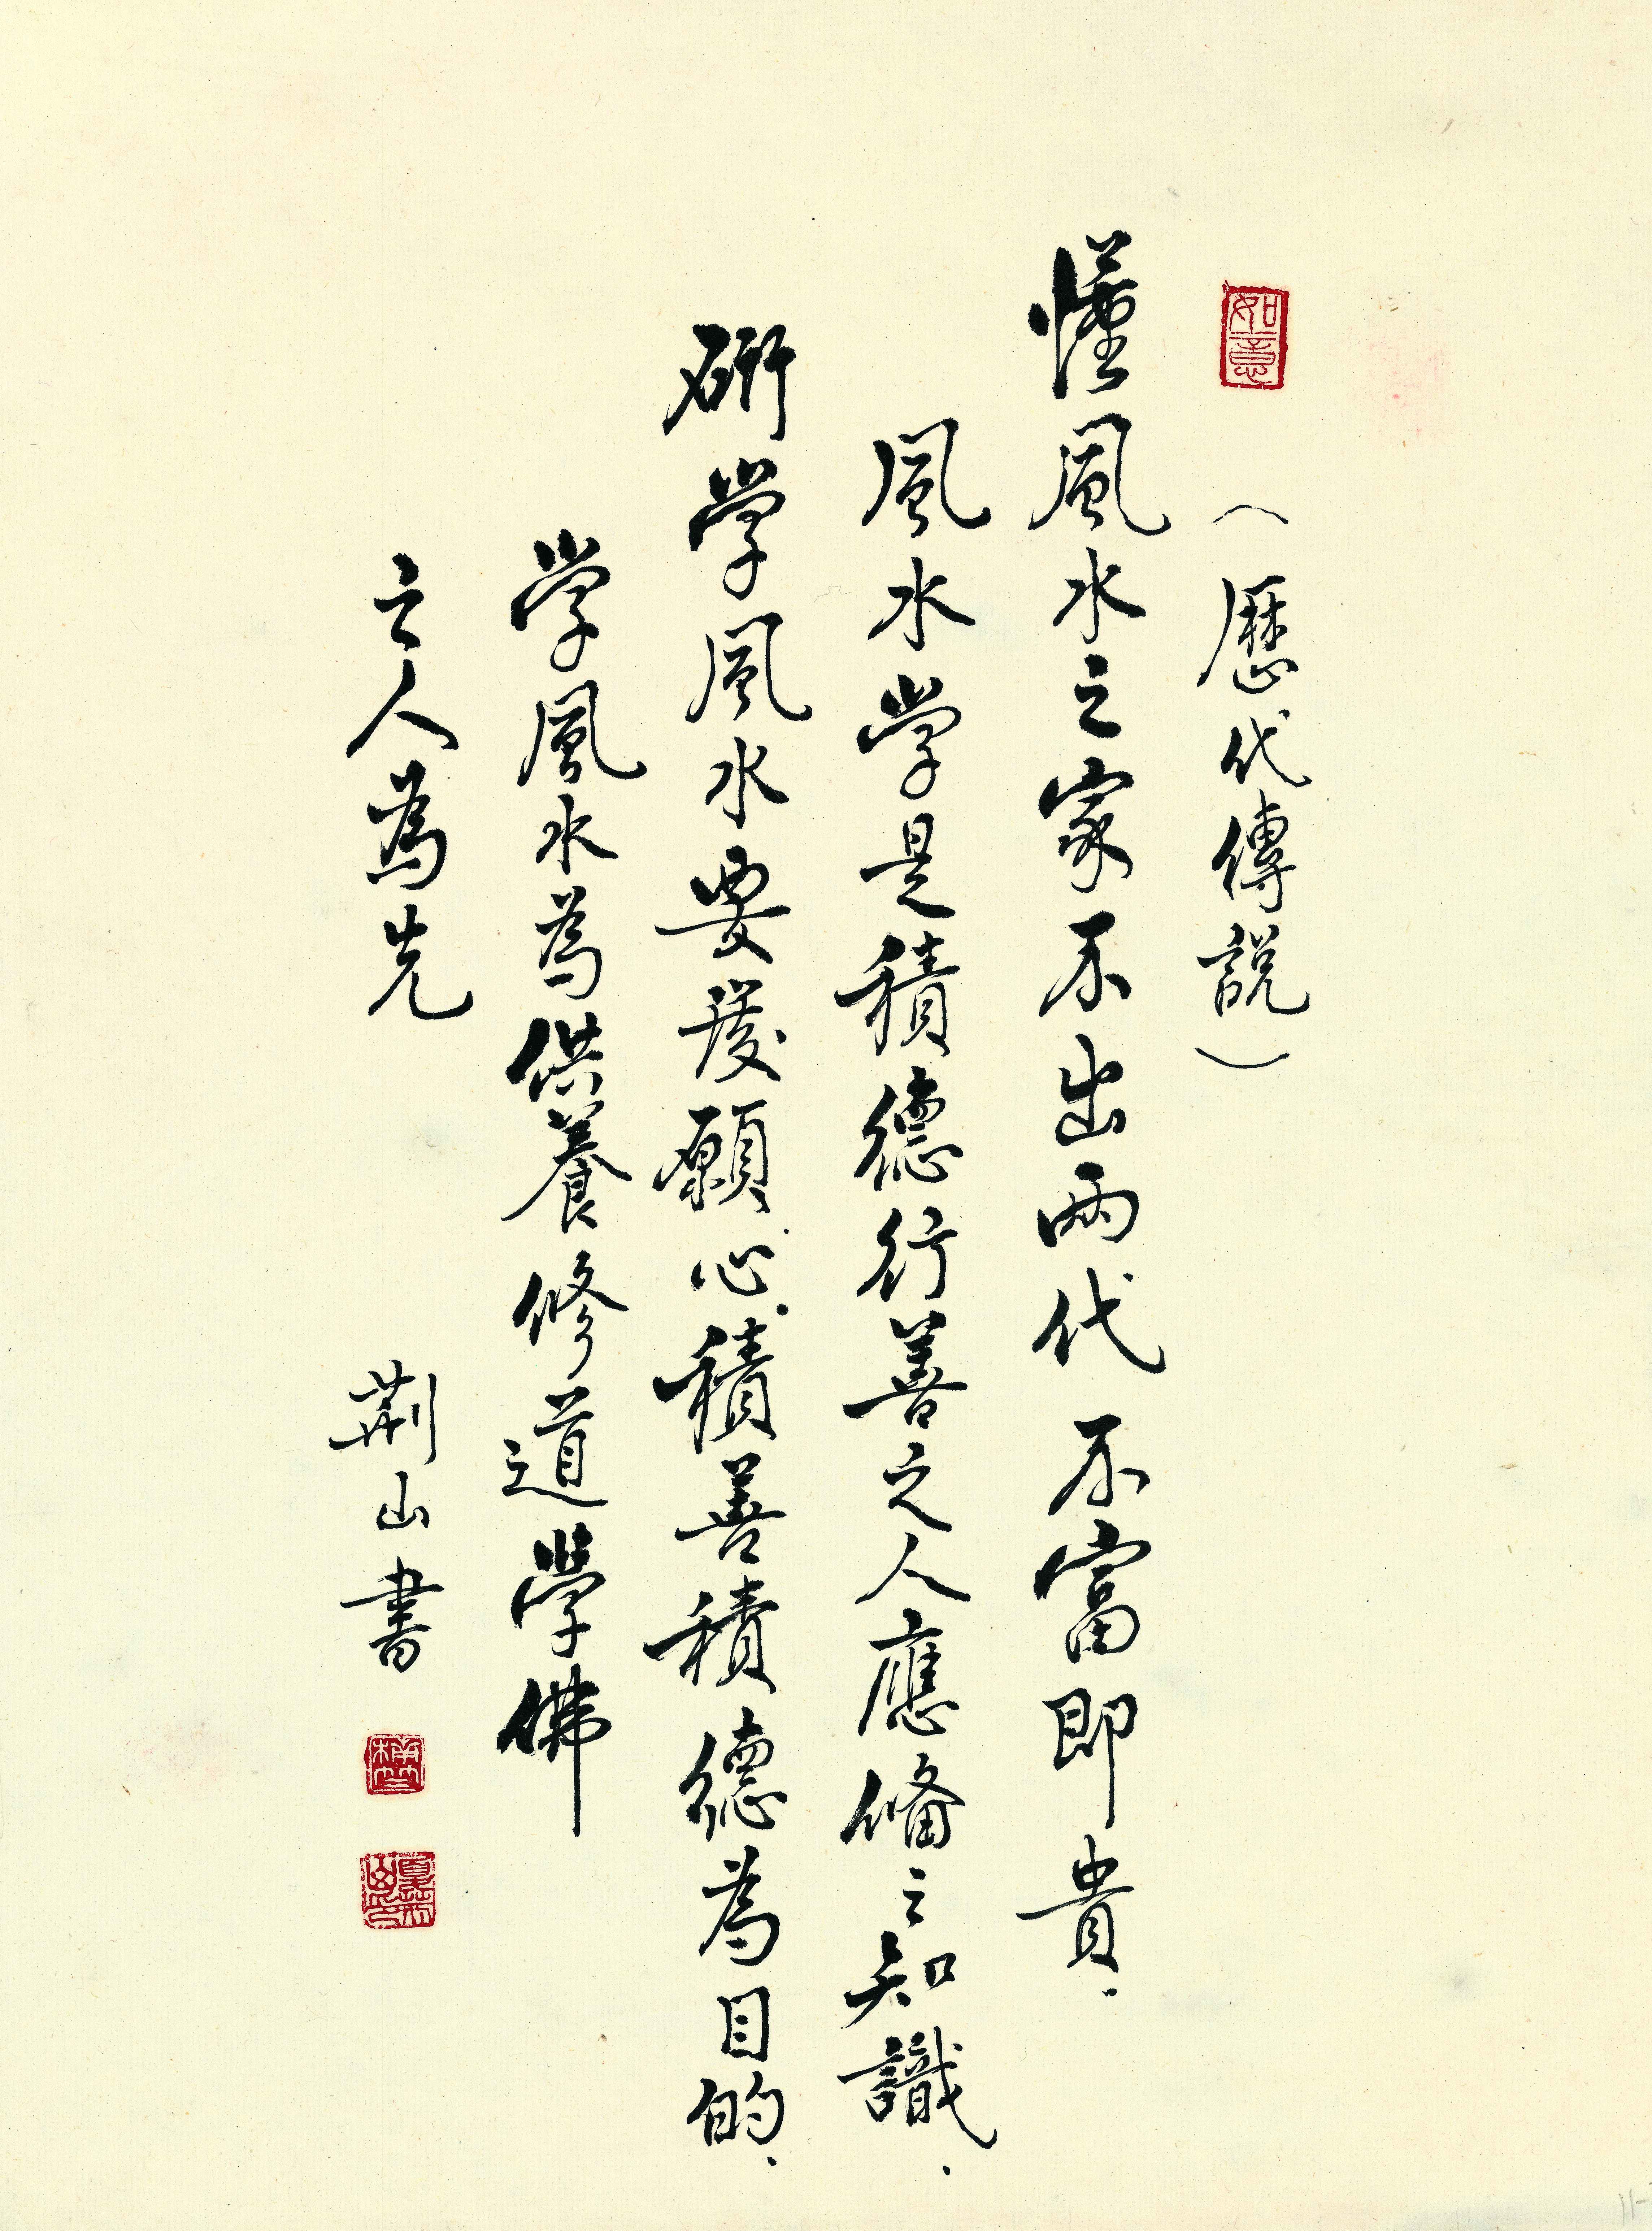 如意
（歷代傳說）
懂風水之家不出兩代不富即貴.
風水學是積德行善之人應備之知識.
硏學風水要發願心.積善積德為目的.
學風水為供養修道學佛
之人為先
荆山書